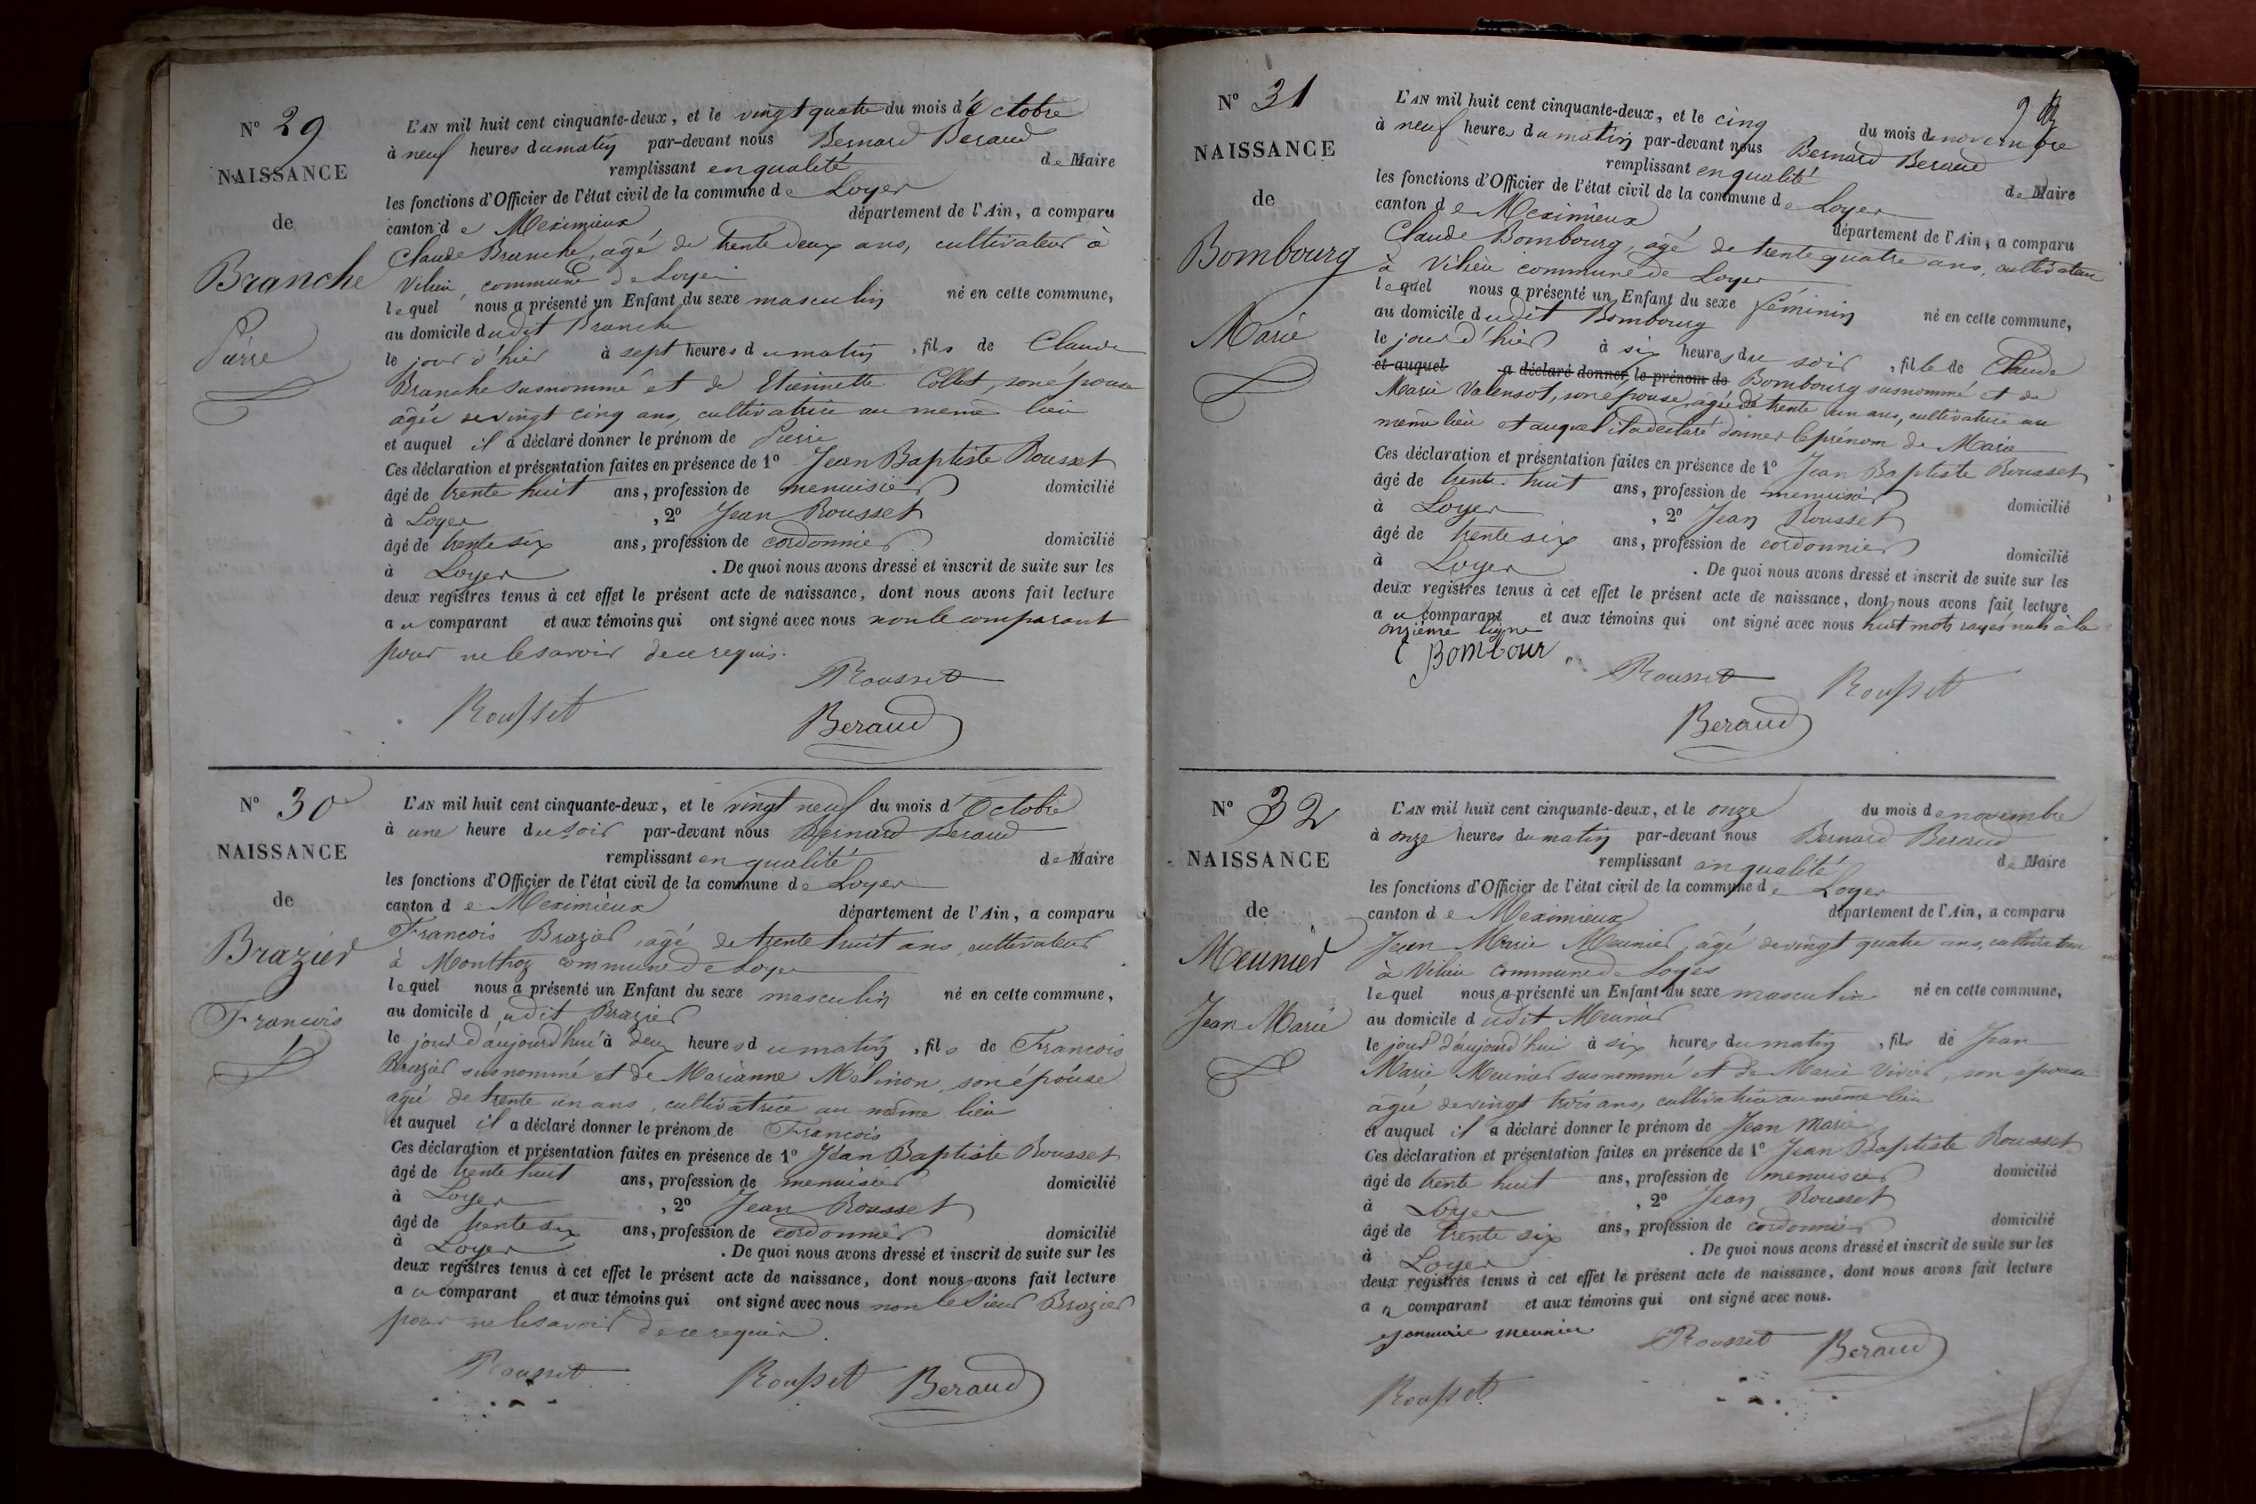 N° 29
NAISSANCE
de
Branche
Pierre
L'AN mil huit cent cinquante-deux, et le vingt quatre du mois d'Octobre
à neuf heures du matin par-devant nous Bernard Beraud
remplissant en qualité de Maire
les fonctions d'Officier de l'état civil de la commune de Loyer
canton de Meximieux département de l'Ain, a comparu
Claude Branche, âgé de trente deux ans, cultivateur à
Vilieu, commune de Loyer
lequel nous a présenté un Enfant du sexe masculin né en cette commune,
au domicile dudit Branche
le jour d'hier à sept heures du matin, fils de Claude
Branche susnommé et de Etiennette Collet, son épouse
âgée de vingt cinq ans, cultivatrice au même lieu
et auquel il a déclaré donner le prénom de Pierre
Ces déclaration et présentation faites en présence de 1° Jean Baptiste Rousset
âgé de trente huit ans, profession de menuisier domicilié
à Loyer, 2° Jean Rousset
âgé de trente six ans, profession de cordonnier domicilié
à Loyer. De quoi nous avons dressé et inscrit de suite sur les
deux registres tenus à cet effet le présent acte de naissance, dont nous avons fait lecture
au comparant et aux témoins qui ont signé avec nous non le comparant
pour ne le savoir de ce requis.
Rousset
Rousset
Beraud
N° 30
NAISSANCE
de
Brazier
François
L'AN mil huit cent cinquante-deux, et le vingt neuf du mois d'Octobre
à une heure du soir par-devant nous Bernard Beraud
remplissant en qualité de Maire
les fonctions d'Officier de l'état civil de la commune de Loyer
canton de Meximieux département de l'Ain, a comparu
François Brazier, âgé de trente huit ans, cultivateur
à Monthoz commune de Loyer
lequel nous a présenté un Enfant du sexe masculin né en cette commune,
au domicile dudit Brazier
le jour d'aujourd'hui à deux heures du matin, fils de François
Brazier susnommé et de Marianne Molinon, son épouse
âgée de trente un ans, cultivatrice au même lieu
et auquel il a déclaré donner le prénom de François
Ces déclaration et présentation faites en présence de 1° Jean Baptiste Rousset
âgé de trente huit ans, profession de menuisier domicilié
à Loyer, 2° Jean Rousset
âgé de trente six ans, profession de cordonnier domicilié
à Loyer. De quoi nous avons dressé et inscrit de suite sur les
deux registres tenus à cet effet le présent acte de naissance, dont nous avons fait lecture
au comparant et aux témoins qui ont signé avec nous non le Sieur Brazier
pour ne le savoir de ce requis.
Rousset Rousset Beraud
N° 31
NAISSANCE
de
Bombourg
Marie
L'AN mil huit cent cinquante-deux, et le cinq du mois de novembre
à neuf heures du matin par-devant nous Bernard Beraud
remplissant en qualité de Maire
les fonctions d'Officier de l'état civil de la commune de Loyer
canton de Meximieux département de l'Ain, a comparu
Claude Bombourg, âgé de trente quatre ans, cultivateur
à Vilieu commune de Loyer
lequel nous a présenté un Enfant du sexe féminin né en cette commune,
au domicile dudit Bombourg
le jour d'hier à six heures du soir, fille de Claude
et auquel a déclaré donner le prénom de Bombourg susnommé et de
Marie Valensot, son épouse, âgée de trente un ans, cultivatrice au
même lieu et auquel il a déclaré donner le prénom de Marie
Ces déclaration et présentation faites en présence de 1° Jean Baptiste Rousset
âgé de trente huit ans, profession de menuisier domicilié
à Loyer, 2° Jean Rousset
âgé de trente six ans, profession de cordonnier domicilié
à Loyer. De quoi nous avons dressé et inscrit de suite sur les
deux registres tenus à cet effet le présent acte de naissance, dont nous avons fait lecture
au comparant et aux témoins qui ont signé avec nous huit mots rayés nuls à la
onzième ligne
C Bombour
Rousset Rousset
Beraud
N° 32
NAISSANCE
de
Meunier
Jean Marie
L'AN mil huit cent cinquante-deux, et le onze du mois de novembre
à onze heures du matin par-devant nous Bernard Beraud
remplissant en qualité de Maire
les fonctions d'Officier de l'état civil de la commune de Loyer
canton de Meximieux département de l'Ain, a comparu
Jean Marie Meunier, âgé de vingt quatre ans, cultivateur
à Vilieu commune de Loyes
lequel nous a présenté un Enfant du sexe masculin né en cette commune,
au domicile dudit Meunier
le jour d'aujourd'hui à six heures du matin, fils de Jean
Marie Meunier susnommé et de Marie Vivier, son épouse
âgée de vingt trois ans, cultivatrice au même lieu
et auquel il a déclaré donner le prénom de Jean Marie
Ces déclaration et présentation faites en présence de 1° Jean Baptiste Rousset
âgé de trente huit ans, profession de menuisier domicilié
à Loyer, 2° Jean Rousset
âgé de trente six ans, profession de cordonnier domicilié
à Loyer. De quoi nous avons dressé et inscrit de suite sur les
deux registres tenus à cet effet le présent acte de naissance, dont nous avons fait lecture
au comparant et aux témoins qui ont signé avec nous.
meunier Rousset Beraud
Rousset